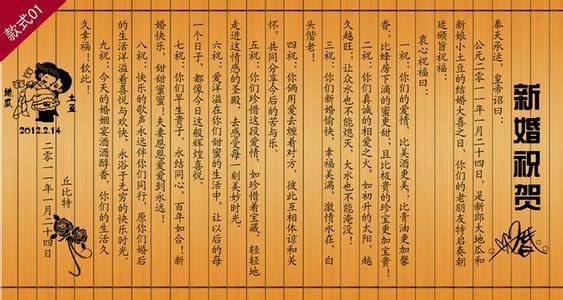 款式01
新婚祝贺
奉天承运,皇帝诏曰:
公元二零一一年一月二十四日,是新郎大地瓜和
新娘小土豆的结婚大喜之日,你们的老朋友特启奏朝
廷颁旨祝福。
衷心祝福曰:
一祝:你们的爱情,比美酒更美,比膏油更加馨
香,比蜂房下滴的蜜更甜;且比极贵的珍宝更加宝贵!
二祝:你们真诚的相爱之火,如初升的太阳,越
久越旺;让众水也不能熄灭,大水也不能淹没!
三祝:你们新婚愉快,幸福美满,激情永在,白
头偕老!
四祝:你俩用爱去缠着对方,彼此互相体谅和关
怀,共同分享今后的苦与乐。
五祝:你们珍惜这段爱情,如珍惜着宝藏,轻轻地
走进这情感的圣殿,去感受每一刻美妙时光。
六祝:爱洋溢在你们甜蜜的生活中,让以后的每
一个日子,都像今日这般辉煌喜悦。
七祝:你们早生贵子,永结同心,百年如合!新
婚快乐,甜甜蜜蜜!夫妻恩恩爱爱到永远!
八祝:快乐的歌声永远伴你们同行,原你们婚后
的生活洋溢着喜悦与欢快,永浴于无穷的快乐时光。
九祝:今天的婚姻宴酒酒醇香,你们的生活久
久幸福!钦此!
丘比特
二零一一年一月二十四日
地瓜
土豆
2012.2.14